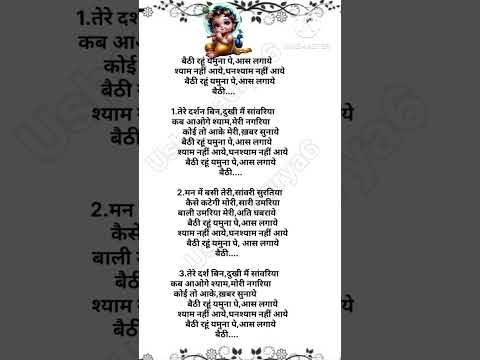 बैठी रहूं यमुना पे,आस लगाये
श्याम नहीं आये,घनश्याम नहीं आये
बैठी रहूं यमुना पे,आस लगाये
बैठी....
1.तेरे दर्शन बिन,दुखी मैं सांवरिया
कब आओगे श्याम,मेरी नगरिया
कोई तो आके मेरी,ख़बर सुनाये
बैठी रहूं यमुना पे,आस लगाये
श्याम नहीं आये,घनश्याम नहीं आये
बैठी रहूं यमुना पे,आस लगाये
बैठी....
2.मन में बसी तेरी,सांवरी सुरतिया
कैसे कटेगी मोरी,सारी उमरिया
बाली उमरिया मेरी,अति घबराये
बैठी रहूं यमुना पे,आस लगाये
श्याम नहीं आये,घनश्याम नहीं आये
बैठी रहूं यमुना पे, आस लगाये
बैठी....
3.तेरे दर्श बिन,दुखी मैं सांवरिया
कब आओगे श्याम,मोरी नगरिया
कोई तो आके,ख़बर सुनाये
बैठी रहूं यमुना पे,आस लगाये
श्याम नहीं आये,घनश्याम नहीं आये
बैठी रहूं यमुना पे,आस लगाये
बैठी....